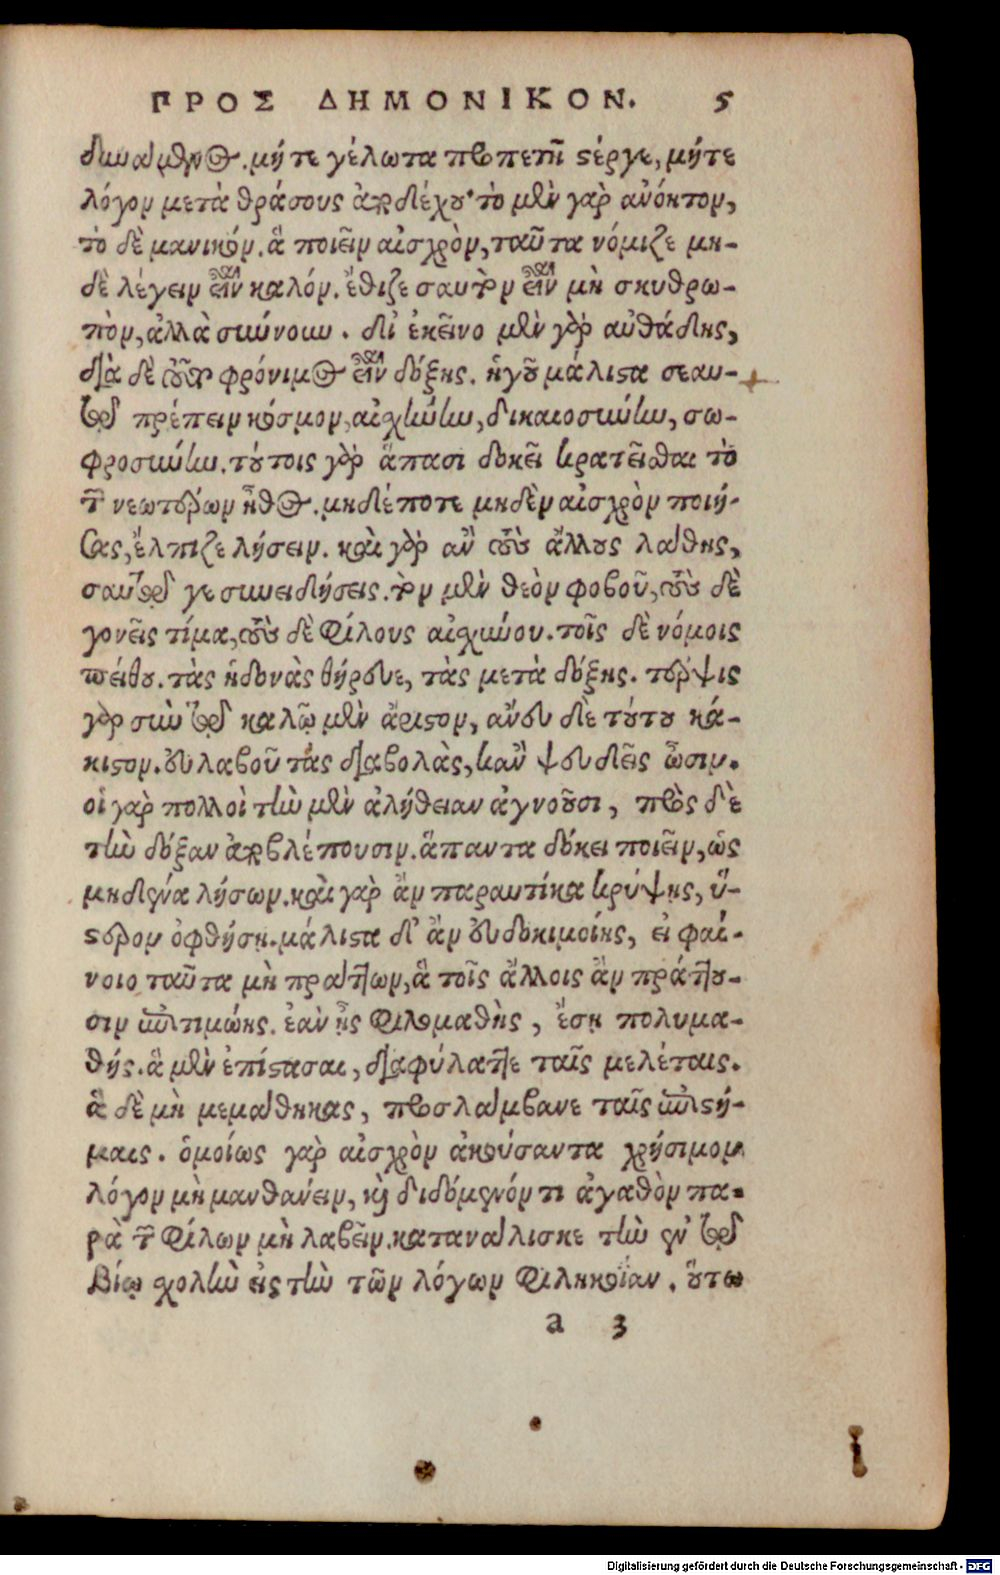 ΠΡΟΣ ΔΗΜΟΝΙΚΟΝ. 5
δυνάμενος. μήτε γέλωτα προπετῆ στέργε, μήτε
λόγον μετὰ θράσους ἀποδέχου· τὸ μὲν γὰρ ἀνόητον,
τὸ δὲ μανικόν. ἃ ποιεῖν αἰσχρὸν, ταῦτα νόμιζε μη-
δὲ λέγειν εἶναι καλόν. ἔθιζε σαυτὸν εἶναι μὴ σκυθρω-
πὸν, ἀλλὰ σύννουν. δι' ἐκεῖνο μὲν γὰρ αὐθάδης,
διὰ δὲ τοῦτο φρόνιμος εἶναι δόξης. ἡγοῦ μάλιστα σεαυ-
τῷ πρέπειν κόσμον, αἰσχύνην, δικαιοσύνην, σω-
φροσύνην. τούτοις γὰρ ἅπασι δοκεῖ κρατεῖσθαι τὸ
τῶν νεωτέρων ἦθος. μηδέποτε μηδὲν αἰσχρὸν ποιή-
σας, ἔλπιζε λήσειν. καὶ γὰρ ἂν τοὺς ἄλλους λάθης,
σαυτῷ γε συνειδήσεις. τὸν μὲν θεὸν φοβοῦ, τοὺς δὲ
γονεῖς τίμα, τοὺς δὲ φίλους αἰσχύνου. τοῖς δὲ νόμοις
πείθου. τὰς ἡδονὰς θήρευε, τὰς μετὰ δόξης. τέρψις
γὰρ σὺν τῷ καλῷ μὲν ἄριστον, ἄνευ δὲ τούτου κά-
κιστον. εὐλαβοῦ τὰς διαβολὰς, κἂν ψευδεῖς ὦσιν.
οἱ γὰρ πολλοὶ τὴν μὲν ἀλήθειαν ἀγνοοῦσι, πρὸς δὲ
τὴν δόξαν ἀποβλέπουσιν. ἅπαντα δόκει ποιεῖν, ὡς
μηδένα λήσων. καὶ γὰρ ἂν παραυτίκα κρύψης, ὕ-
στερον ὀφθήση. μάλιστα δ' ἂν εὐδοκιμοίης, εἰ φαί-
νοιο ταῦτα μὴ πράττων, ἃ τοῖς ἄλλοις ἂν πράττου-
σιν ἐπιτιμώης. ἐὰν ᾖς φιλομαθὴς, ἔση πολυμα-
θής. ἃ μὲν ἐπίστασαι, διαφύλαττε ταῖς μελέταις.
ἃ δὲ μὴ μεμάθηκας, προσλάμβανε ταῖς ἐπιστή-
μαις. ὁμοίως γὰρ αἰσχρὸν ἀκούσαντα χρήσιμον
λόγον μὴ μανθάνειν, καὶ διδόμενόν τι ἀγαθὸν πα-
ρὰ τῶν φίλων μὴ λαβεῖν. κατανάλισκε τὴν ἐν τῷ
βίῳ σχολὴν εἰς τὴν τῶν λόγων φιληκοΐαν. οὕτω
a 3
Digitalisierung gefördert durch die Deutsche Forschungsgemeinschaft - DFG